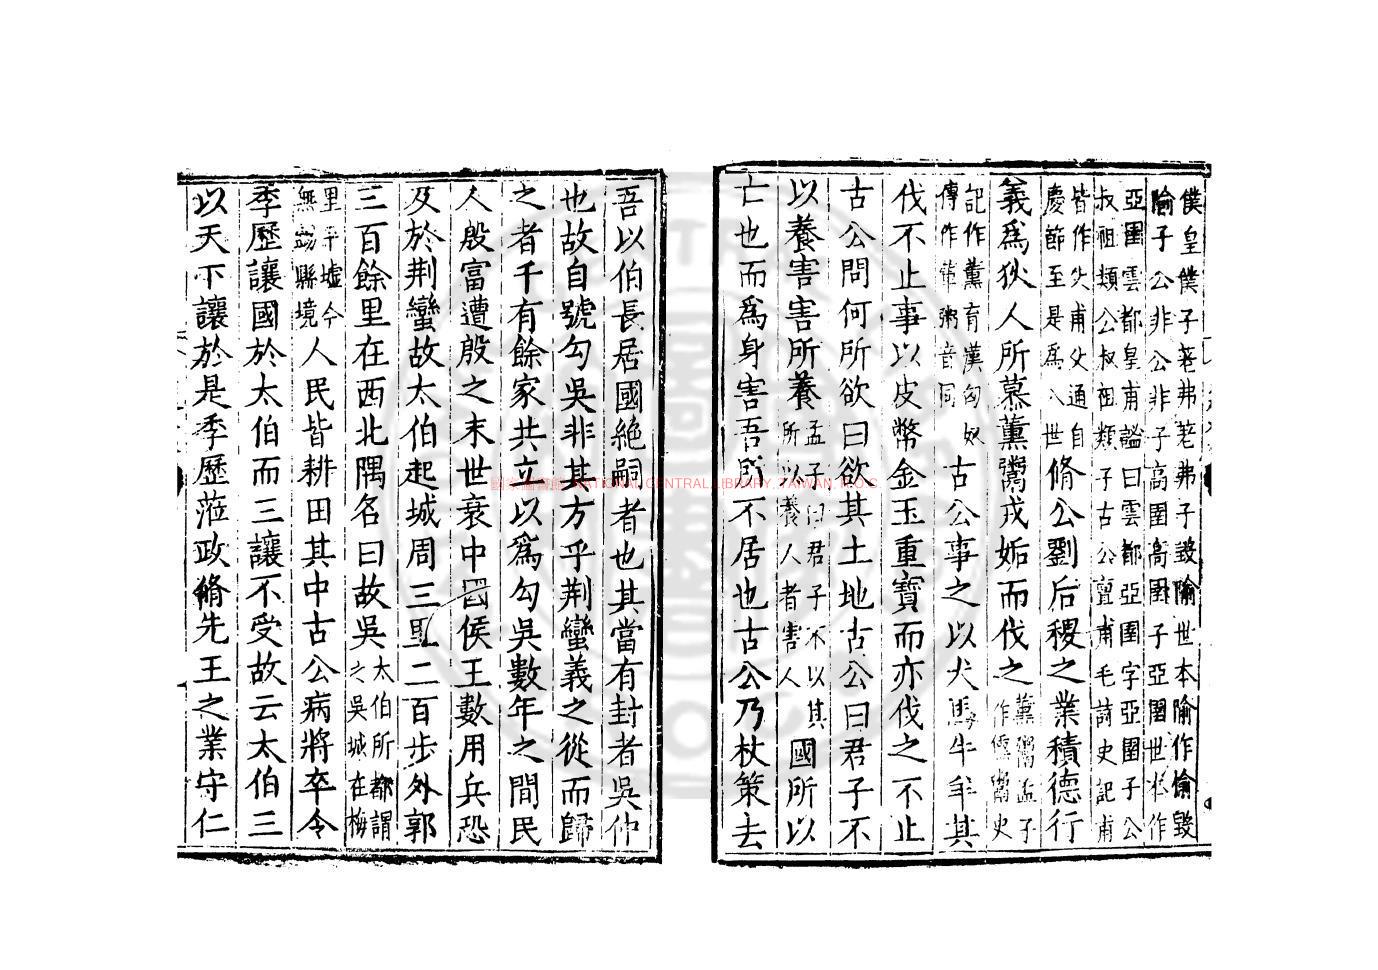 僕皇僕子羗弗羗弗子毀隃世本隃作偷毀
隃子公非公非子高圉高圉子亞圉世本作
亞圉雲都皇甫謐曰雲都亞圉字亞圉子公
叔祖類公叔祖類子古公亶甫毛詩史記甫
皆作父甫父通自
慶節至是爲八世脩公劉后稷之業積德行
義爲狄人所慕薰鬻戎姤而伐之薰鬻孟子
作獯鬻史
記作薰育漢匈奴
傳作葷粥音同古公事之以犬馬牛羊其
伐不止事以皮幣金玉重寶而亦伐之不止
古公問何所欲曰欲其土地古公曰君子不
以養害害所養孟子曰君子不以其
所以養人者害人國所以
亡也而爲身害吾所不居也古公乃杖策去
吾以伯長居國絶嗣者也其當有封者吳仲
也故自號勾吳非其方乎荆蠻義之從而歸
之者千有餘家共立以爲勾吳數年之間民
人殷富遭殷之末世衰中國侯王數用兵恐
及於荆蠻故太伯起城周三里二百步外郭
三百餘里在西北隅名曰故吳太伯所都謂
之吳城在梅
里平墟今
無錫縣境人民皆耕田其中古公病將卒令
季歷讓國於太伯而三讓不受故云太伯三
以天下讓於是季歷蒞政脩先王之業守仁
國家圖書館 NATIONAL CENTRAL LIBRARY, TAIWAN, R.O.C